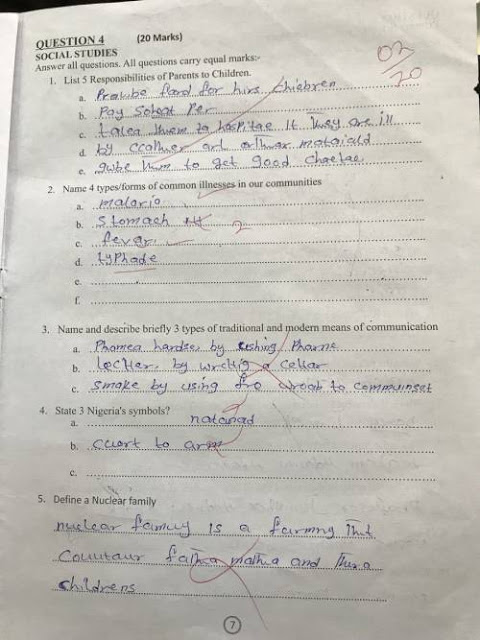 QUESTION 4 (20 Marks)
SOCIAL STUDIES
Answer all questions. All questions carry equal marks:-
1. List 5 Responsibilities of Parents to Children.
a. Prowbe food for hirs Chiebren
b. Pay School Per
c. talea them to hospitae It they are ill
d. by ccother art other mataiald
e. gube him to get good
2. Name 4 types/forms of common illnesses in our communities
a. malario
b. Stomach
c. fever
d. typhade
e.
f.
3. Name and describe briefly 3 types of traditional and modern means of communication
a. hardse by ushing Pharne
b. by a
c. Smoke by using to
4. State 3 Nigeria's symbols?
a. natanad
b. cuort to arm
c.
5. Define a Nuclear family
nuclear famuy is a that
fathea mathea and
childrens
02/20
2
7